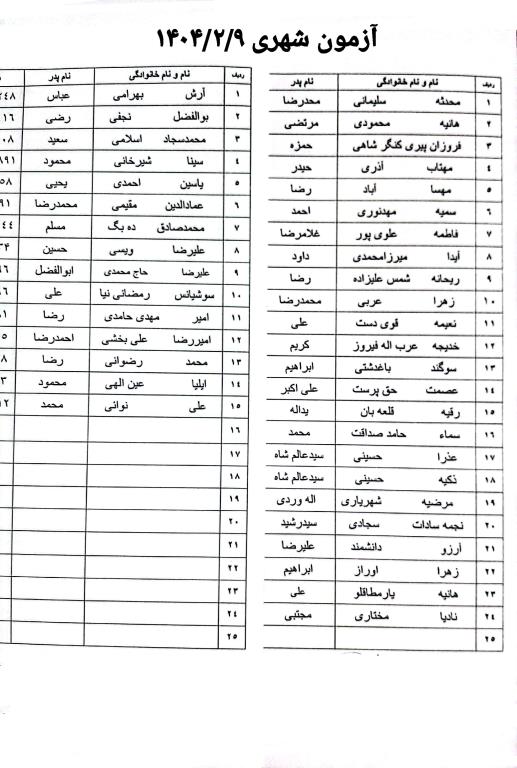 آزمون شهری ۱۴۰۴/۲/۹
ردیف نام و نام خانوادگی نام پدر
۱ محدثه سلیمانی محدرضا
۲ هانیه محمودی مرتضی
۳ فروزان پیری کنگر شاهی حمزه
۴ مهتاب آذری حیدر
۵ مهسا آباد رضا
۶ سمیه مهدنوری احمد
۷ فاطمه علوی پور غلامرضا
۸ آیدا میرزامحمدی داود
۹ ریحانه شمس علیزاده رضا
۱۰ زهرا عربی محمدرضا
۱۱ نعیمه قوی دست علی
۱۲ خدیجه عرب اله فیروز کریم
۱۳ سوگند باغدشتی ابراهیم
۱۴ عصمت حق پرست علی اکبر
۱۵ رقیه قلعه بان یداله
۱۶ سماء حامد صداقت محمد
۱۷ عذرا حسینی سیدعالم شاه
۱۸ ذکیه حسینی سیدعالم شاه
۱۹ مرضیه شهریاری اله وردی
۲۰ نجمه سادات سجادی سیدرشید
۲۱ آرزو دانشمند علیرضا
۲۲ زهرا اوراز ابراهیم
۲۳ هانیه یارمطاقلو علی
۲۴ نادیا مختاری مجتبی
۲۵
ردیف نام و نام خانوادگی نام پدر
۱ آرش بهرامی عباس ۲۴۸
۲ بوالفضل نجفی رضی ۱۶
۳ محمدسجاد اسلامی سعید ۰۸
۴ سینا شیرخانی محمود ۸۹۱
۵ یاسین احمدی یحیی ۵۸
۶ عمادالدین مقیمی محمدرضا ۹۱
۷ محمدصادق ده بگ مسلم ۴۴
۸ علیرضا ویسی حسین
۹ علیرضا حاج محمدی ابوالفضل
۱۰ سوشیانس رمضانی نیا علی
۱۱ امیر مهدی حامدی رضا
۱۲ امیررضا علی بخشی احمدرضا ۵
۱۳ محمد رضوانی رضا ۸
۱۴ ایلیا عین الهی محمود ۳
۱۵ علی نوائی محمد ۱۲
۱۶
۱۷
۱۸
۱۹
۲۰
۲۱
۲۲
۲۳
۲۴
۲۵